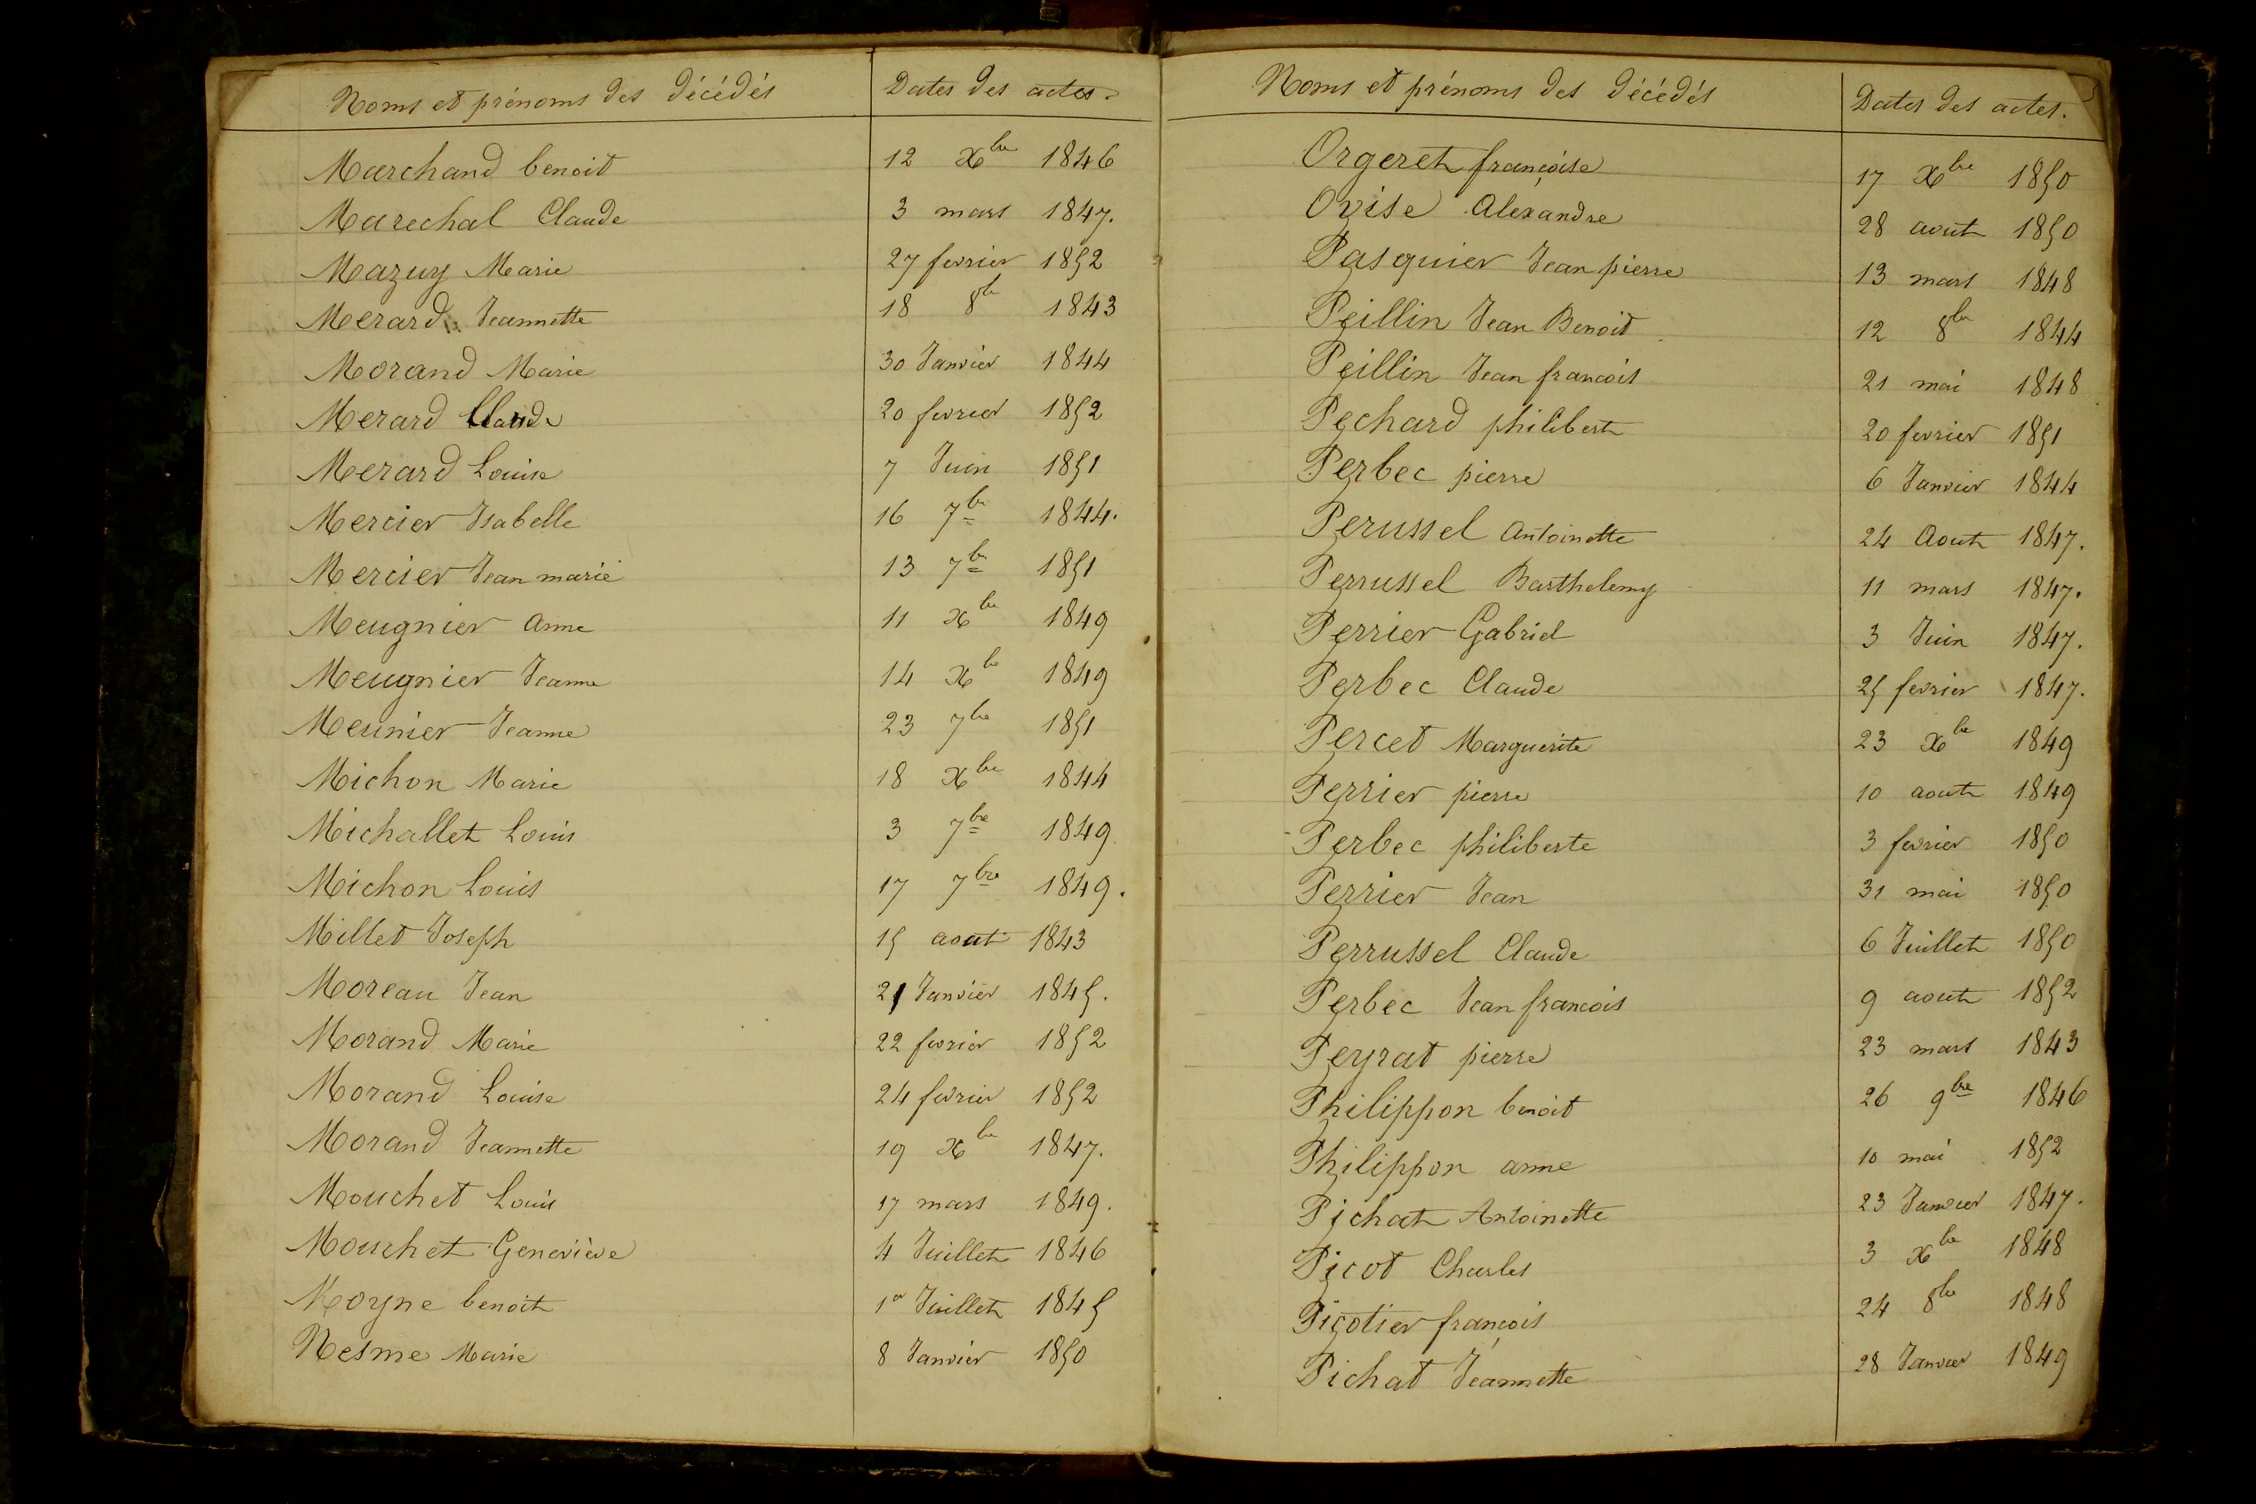 Noms et prénoms des décédés Dates des actes.
Marchand benoit 12 Xbre 1846
Marechal Claude 3 mars 1847.
Mazuy Marie 27 fevrier 1852
Merard Jeannette 18 8bre 1843
Morand Marie 30 Janvier 1844
Merard Claude 20 fevrier 1852
Merard Louise 7 Juin 1851
Mercier Isabelle 16 7bre 1844.
Mercier Jean marie 13 7bre 1851
Meugnier anne 11 Xbre 1849
Meugnier Jeanne 14 Xbre 1849
Meunier Jeanne 23 7bre 1851
Michon Marie 18 Xbre 1844
Michallet Louis 3 7bre 1849
Michon Louis 17 7bre 1849.
Millet Joseph 15 aout 1843
Moreau Jean 21 Janvier 1845.
Morand Marie 22 fevrier 1852
Morand Louise 24 fevrier 1852
Morand Jeannette 19 Xbre 1847.
Mouchet Louis 17 mars 1849.
Mouchet Geneviève 4 Juillet 1846
Moyne benoit 1er Juillet 1845
Nesme Marie 8 Janvier 1850
Noms et prénoms des décédés Dates des actes.
Orgeret françoise 17 Xbre 1850
Ovise Alexandre 28 aout 1850
Pasquier Jean pierre 13 mars 1848
Peillin Jean Benoit 12 8bre 1844
Peillin Jean francois 21 mai 1848
Pechard philibert 20 fevrier 1851
Perbec pierre 6 Janvier 1844
Perussel Antoinette 24 Aout 1847.
Perrussel Barthelemy 11 mars 1847.
Perrier Gabriel 3 Juin 1847.
Perbec Claude 25 fevrier 1847.
Percet Marguerite 23 Xbre 1849
Perrier pierre 10 aout 1849
Perbec philiberte 3 fevrier 1850
Perrier Jean 31 mai 1850
Perrussel Claude 6 Juillet 1850
Perbec Jean francois 9 aout 1852
Peyrat pierre 23 mars 1843
Philippon benoit 26 9bre 1846
Philippon anne 10 mai 1852
Pichat Antoinette 23 Janvier 1847.
Picot Charles 3 Xbre 1848
Picotier françois 24 8bre 1848
Pichat Jeannette 28 Janvier 1849